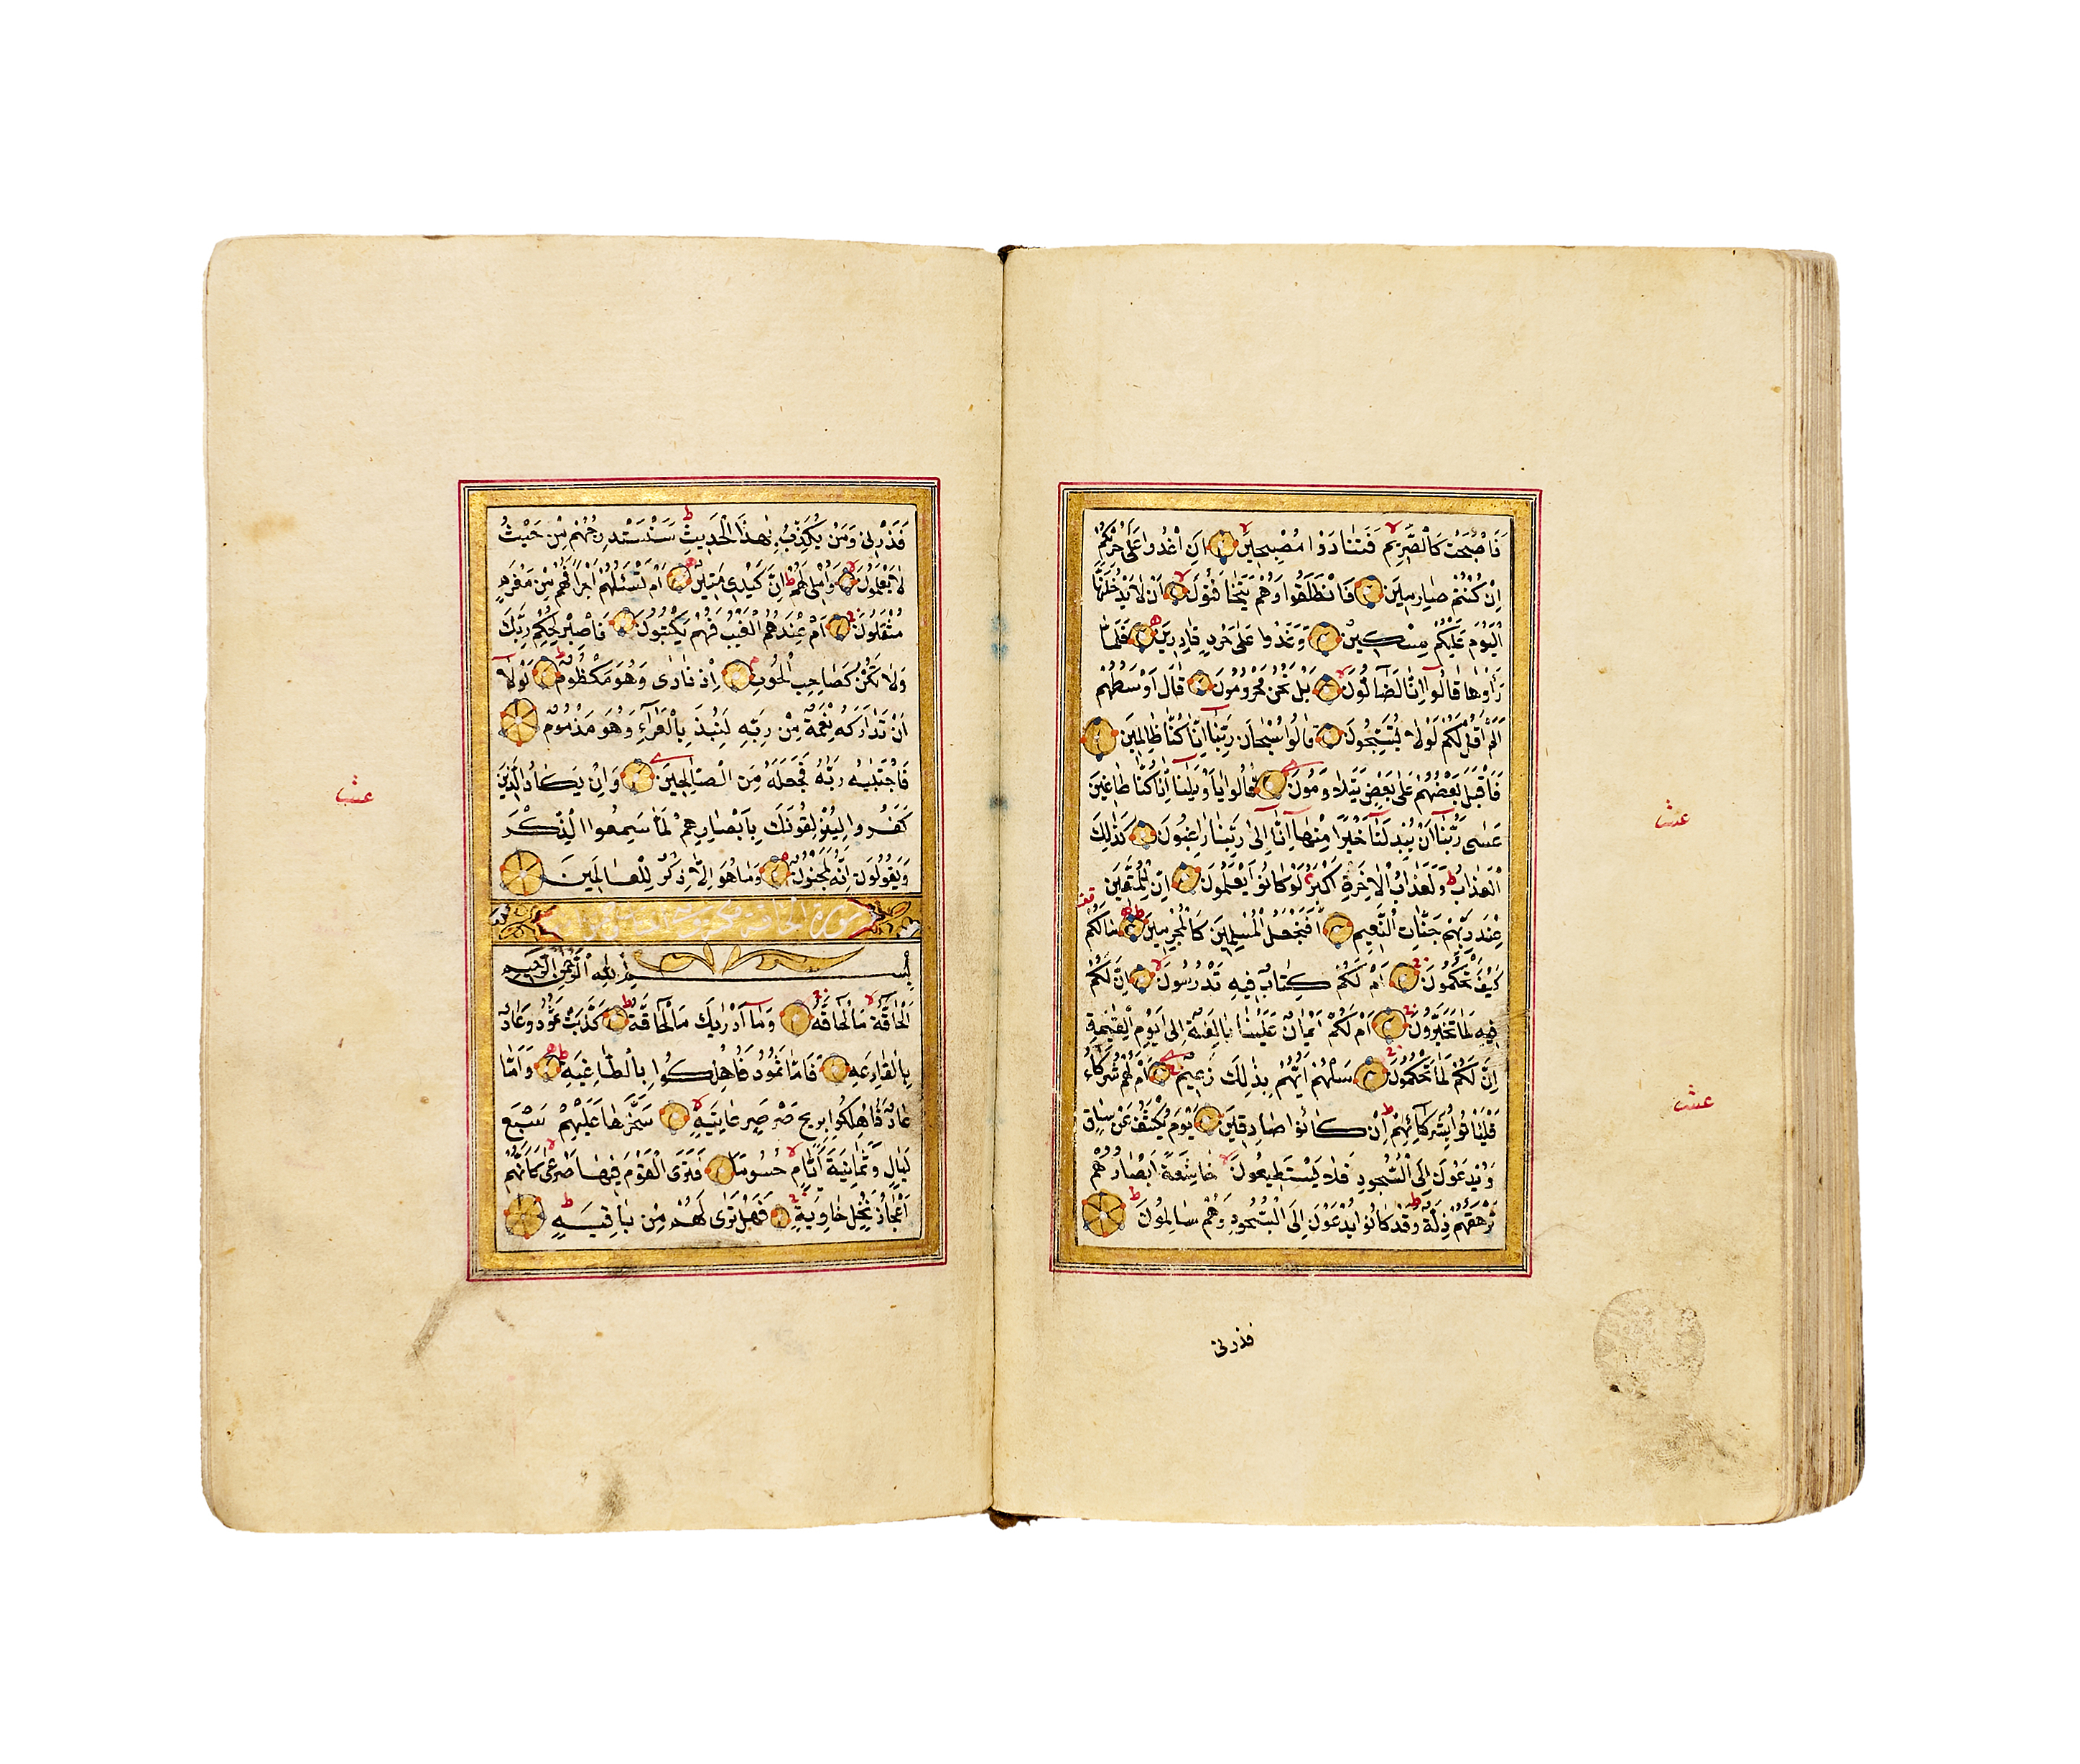 فَاَصْبَحَتْ كَالصَّرِيمِ فَتَنَادَوْا مُصْبِحِينَ اَنِ اغْدُوا عَلٰى حَرْثِكُمْ
اِنْ كُنْتُمْ صَارِمِينَ فَانْطَلَقُوا وَهُمْ يَتَخَافَتُونَ اَنْ لَا يَدْخُلَنَّهَا
الْيَوْمَ عَلَيْكُمْ مِسْكِينٌ وَغَدَوْا عَلٰى حَرْدٍ قَادِرِينَ فَلَمَّا
رَاَوْهَا قَالُوا اِنَّا لَضَالُّونَ بَلْ نَحْنُ مَحْرُومُونَ قَالَ اَوْسَطُهُمْ
اَلَمْ اَقُلْ لَكُمْ لَوْلَا تُسَبِّحُونَ قَالُوا سُبْحَانَ رَبِّنَا اِنَّا كُنَّا ظَالِمِينَ
فَاَقْبَلَ بَعْضُهُمْ عَلٰى بَعْضٍ يَتَلَاوَمُونَ قَالُوا يَا وَيْلَنَا اِنَّا كُنَّا طَاغِينَ
عَسٰى رَبُّنَا اَنْ يُبْدِلَنَا خَيْرًا مِنْهَا اِنَّا اِلٰى رَبِّنَا رَاغِبُونَ كَذٰلِكَ
الْعَذَابُ وَلَعَذَابُ الْاٰخِرَةِ اَكْبَرُ لَوْ كَانُوا يَعْلَمُونَ اِنَّ لِلْمُتَّقِينَ
عِنْدَ رَبِّهِمْ جَنَّاتِ النَّعِيمِ اَفَنَجْعَلُ الْمُسْلِمِينَ كَالْمُجْرِمِينَ مَا لَكُمْ
كَيْفَ تَحْكُمُونَ اَمْ لَكُمْ كِتَابٌ فِيهِ تَدْرُسُونَ اِنَّ لَكُمْ
فِيهِ لَمَا تَخَيَّرُونَ اَمْ لَكُمْ اَيْمَانٌ عَلَيْنَا بَالِغَةٌ اِلٰى يَوْمِ الْقِيٰمَةِ
اِنَّ لَكُمْ لَمَا تَحْكُمُونَ سَلْهُمْ اَيُّهُمْ بِذٰلِكَ زَعِيمٌ اَمْ لَهُمْ شُرَكَاءُ
فَلْيَاْتُوا بِشُرَكَائِهِمْ اِنْ كَانُوا صَادِقِينَ يَوْمَ يُكْشَفُ عَنْ سَاقٍ
وَيُدْعَوْنَ اِلَى السُّجُودِ فَلَا يَسْتَطِيعُونَ خَاشِعَةً اَبْصَارُهُمْ
تَرْهَقُهُمْ ذِلَّةٌ وَقَدْ كَانُوا يُدْعَوْنَ اِلَى السُّجُودِ وَهُمْ سَالِمُونَ
عشر
عشر
فذرنى
فَذَرْنِى وَمَنْ يُكَذِّبُ بِهٰذَا الْحَدِيثِ سَنَسْتَدْرِجُهُمْ مِنْ حَيْثُ
لَا يَعْلَمُونَ وَاُمْلِى لَهُمْ اِنَّ كَيْدِى مَتِينٌ اَمْ تَسْئَلُهُمْ اَجْرًا فَهُمْ مِنْ مَغْرَمٍ
مُثْقَلُونَ اَمْ عِنْدَهُمُ الْغَيْبُ فَهُمْ يَكْتُبُونَ فَاصْبِرْ لِحُكْمِ رَبِّكَ
وَلَا تَكُنْ كَصَاحِبِ الْحُوتِ اِذْ نَادٰى وَهُوَ مَكْظُومٌ لَوْلَا
اَنْ تَدَارَكَهُ نِعْمَةٌ مِنْ رَبِّهِ لَنُبِذَ بِالْعَرَاءِ وَهُوَ مَذْمُومٌ
فَاجْتَبٰيهُ رَبُّهُ فَجَعَلَهُ مِنَ الصَّالِحِينَ وَاِنْ يَكَادُ الَّذِينَ
كَفَرُوا لَيُزْلِقُونَكَ بِاَبْصَارِهِمْ لَمَّا سَمِعُوا الذِّكْرَ
وَيَقُولُونَ اِنَّهُ لَمَجْنُونٌ وَمَا هُوَ اِلَّا ذِكْرٌ لِلْعَالَمِينَ
سورة الحاقة
بِسْمِ اللّٰهِ الرَّحْمٰنِ الرَّحِيمِ
اَلْحَاقَّةُ مَا الْحَاقَّةُ وَمَا اَدْرٰيكَ مَا الْحَاقَّةُ كَذَّبَتْ ثَمُودُ وَعَادٌ
بِالْقَارِعَةِ فَاَمَّا ثَمُودُ فَاُهْلِكُوا بِالطَّاغِيَةِ وَاَمَّا
عَادٌ فَاُهْلِكُوا بِرِيحٍ صَرْصَرٍ عَاتِيَةٍ سَخَّرَهَا عَلَيْهِمْ سَبْعَ
لَيَالٍ وَثَمَانِيَةَ اَيَّامٍ حُسُومًا فَتَرَى الْقَوْمَ فِيهَا صَرْعٰى كَاَنَّهُمْ
اَعْجَازُ نَخْلٍ خَاوِيَةٍ فَهَلْ تَرٰى لَهُمْ مِنْ بَاقِيَةٍ
عشر